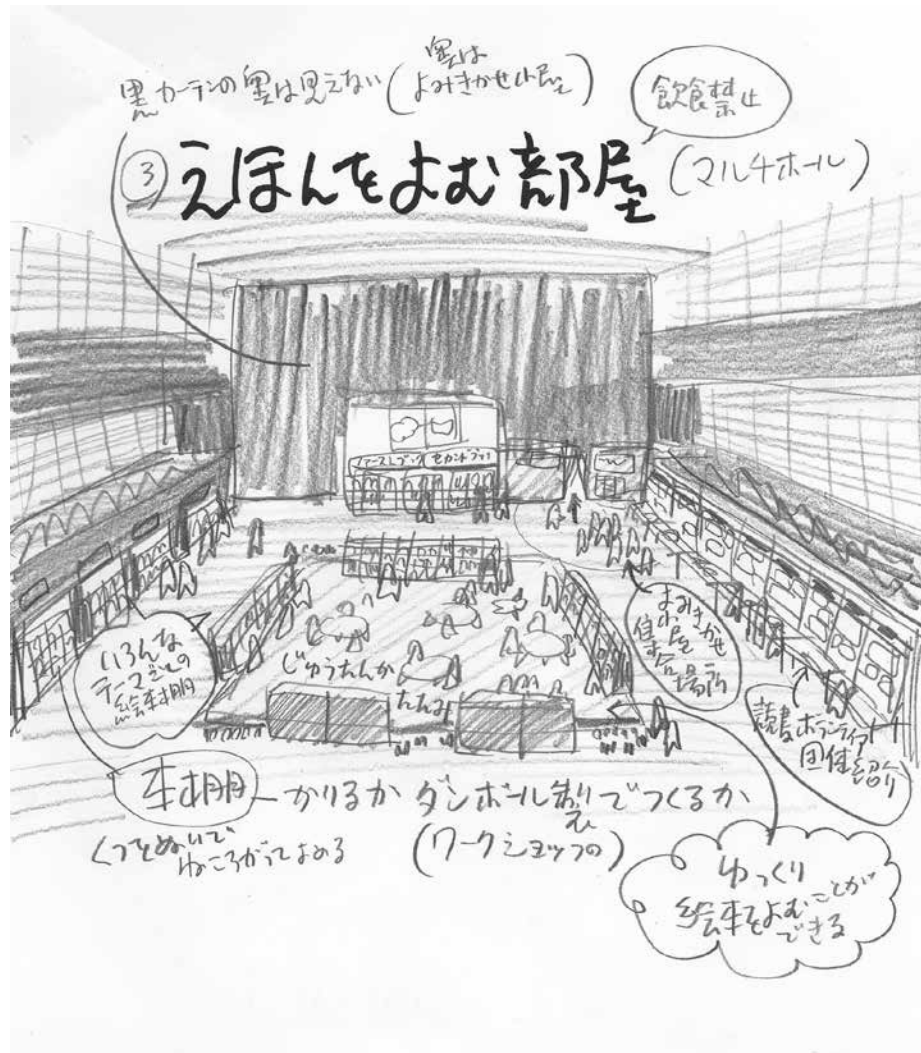 黒カーテンの奥は見えない(奥は
よみきかせ小屋)
飲食禁止
③えほんをよむ部屋(マルチホール)
ファーストブック セカンドブック
いろんな
テーマごとの
絵本棚
じゅうたんか
たたみ
よみきかせ
小屋
待合場所
読書ボランティア
団体紹介
本棚―かりるか ダンボール製でつくるか
くつをぬいで
ねころがってよめる
(ワークショップの)
ゆっくり
絵本をよむことが
できる